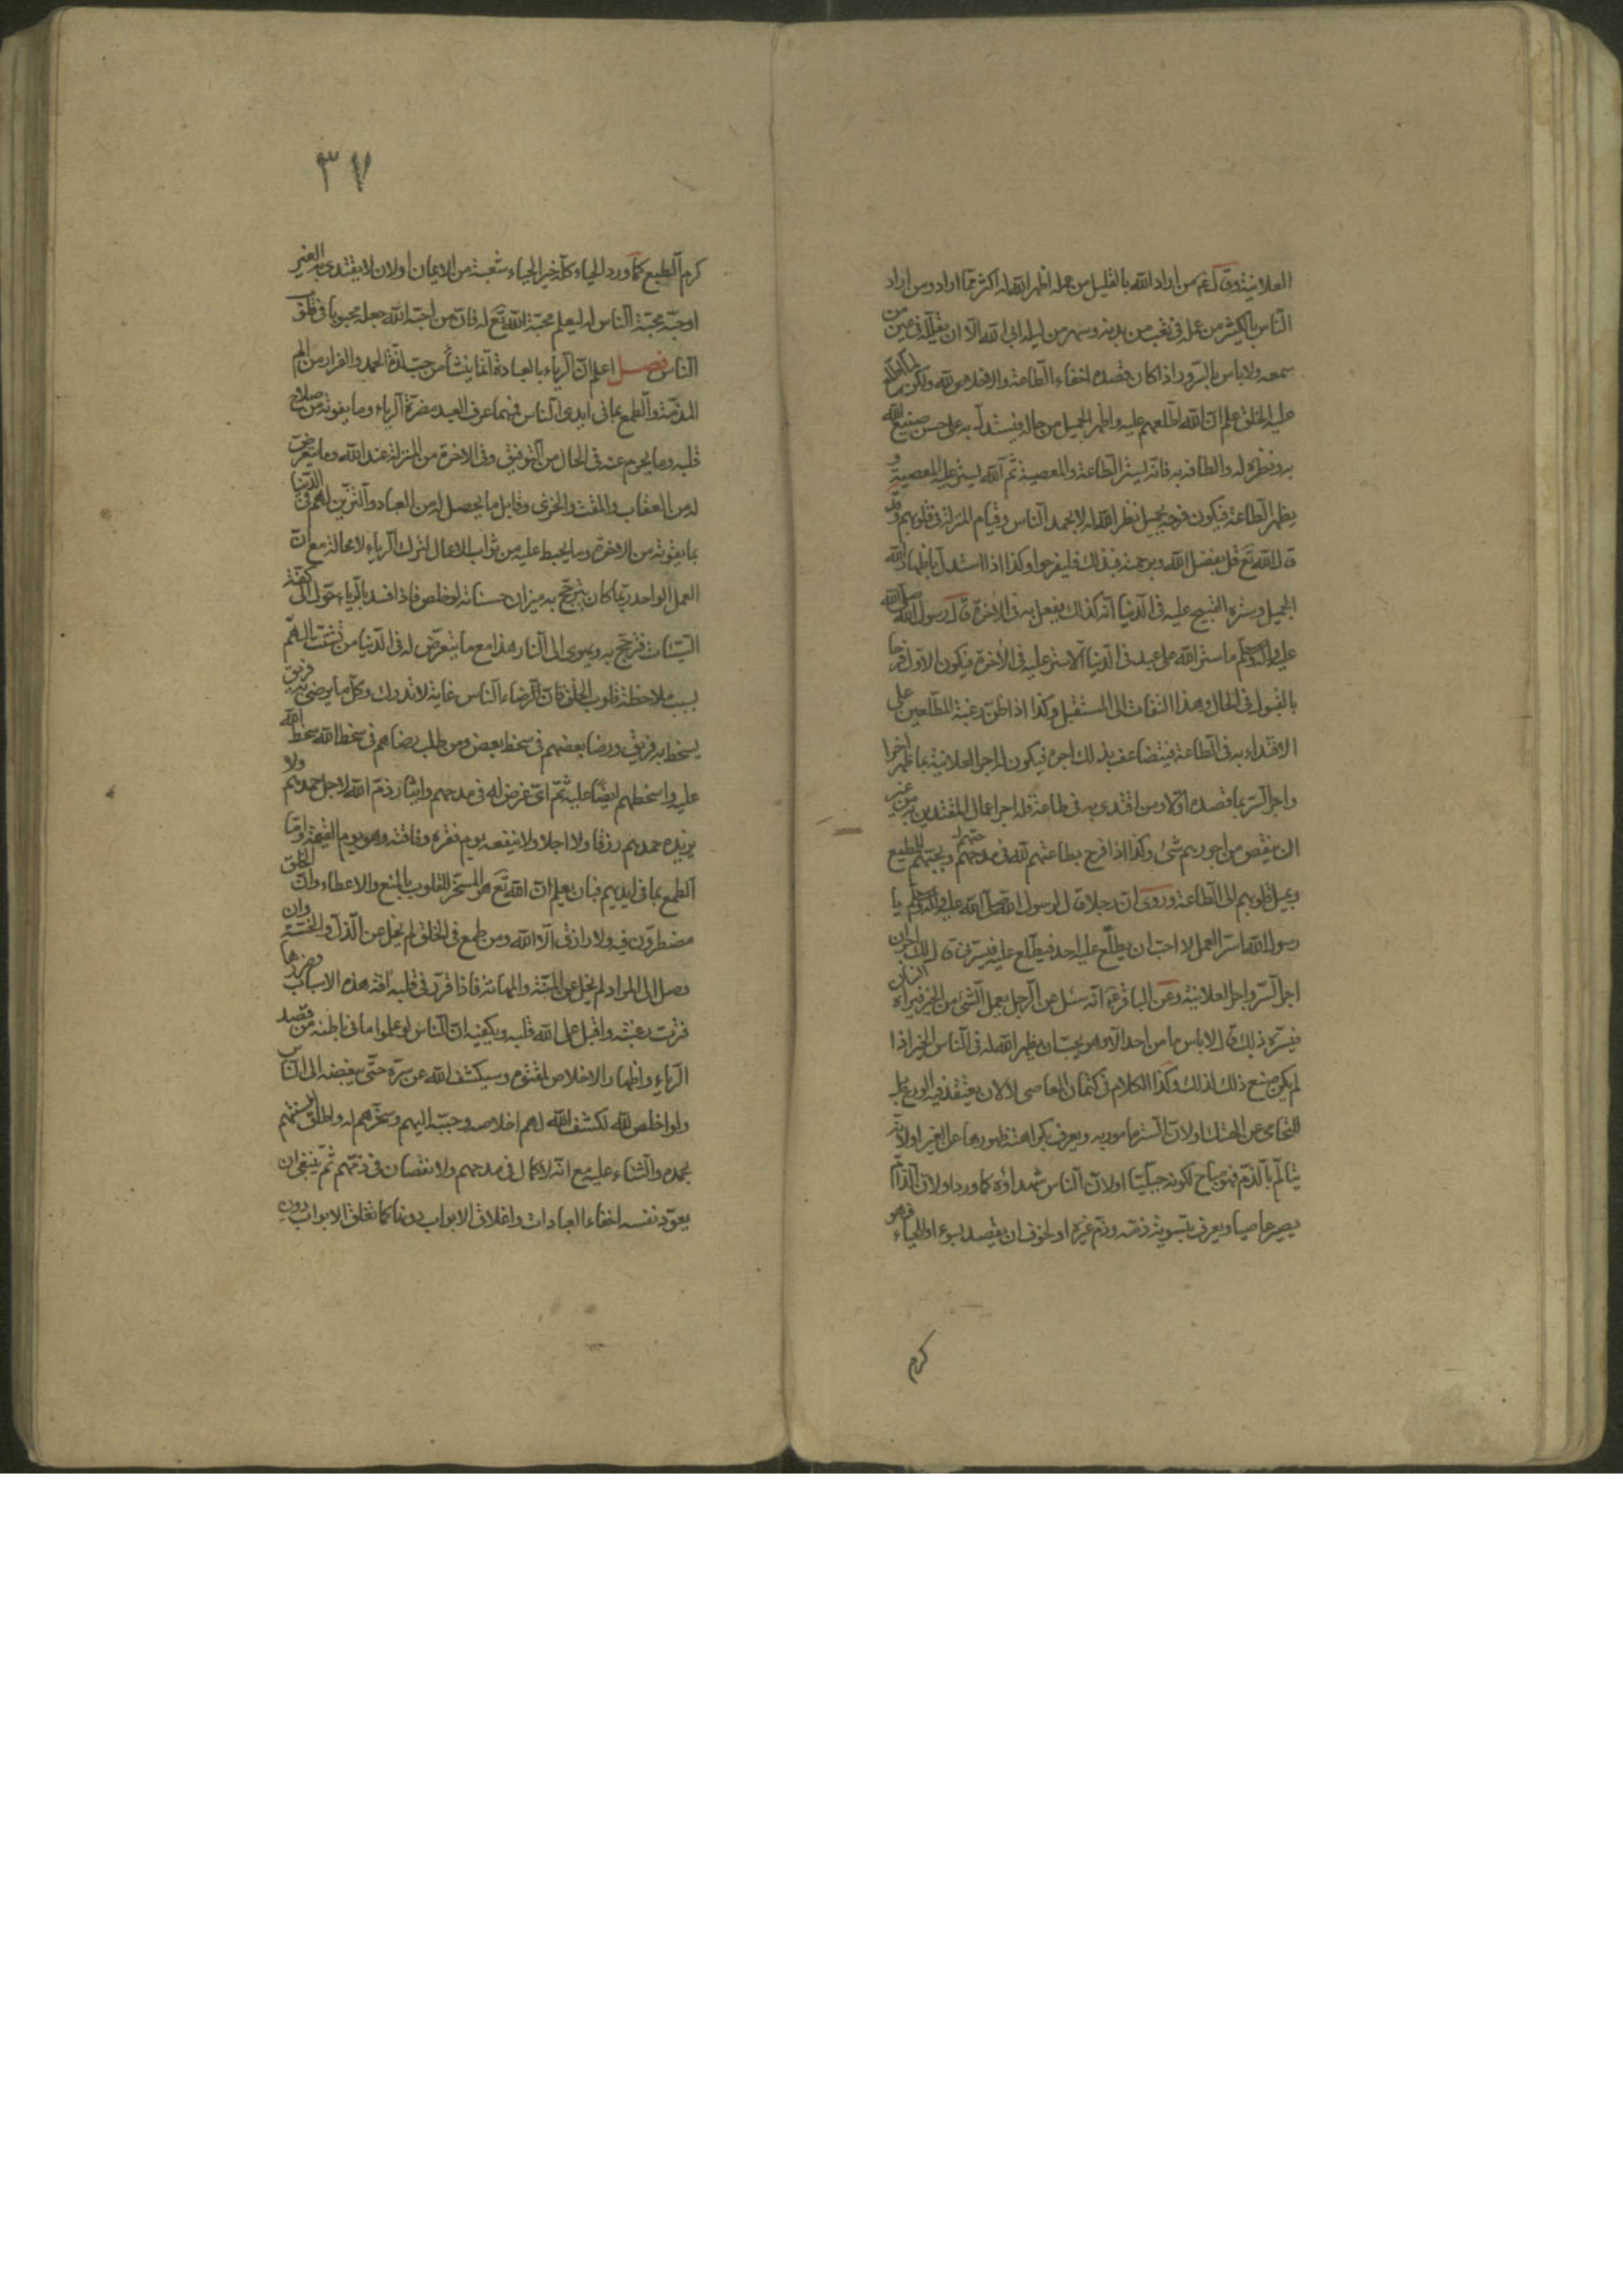 العلانية وقال ع م من اراد الله بالقليل من عمله اظهر الله له اكثر مما اراد ومن اراد
الناس بالكثير من عمله في تعب من بدنه وسهر من ليله ابى الله الا ان يقلله في عين من
سمعه ولا باس بالسرور اذا كان قصده اخفاء الطاعة والاخلاص لله ولكن لما اطلع
عليه الخلق علم ان الله اطلعهم عليه واظهر الجميل من حاله فيستدل به على حسن صنيع الله
به ونظره له والطافه به فانه يستر الطاعة والمعصية ثم الله يستر عليه المعصية و
يظهر الطاعة فيكون فرحه بجميل نظر الله له لا بحمد الناس وقيام المنزلة في قلوبهم وقد
قال الله تع قل بفضل الله وبرحمته فبذلك فليفرحوا وكذا اذا استدل باظهار الله
الجميل وستره القبيح عليه في الدنيا انه كذلك يفعل به في الاخرة قال رسول الله صلى الله
عليه واله وسلم ما ستر الله على عبد في الدنيا الا ستر عليه في الاخرة فيكون الاول فرحا
بالقبول في الحال وهذا التفات الى المستقبل وكذا اذا ظن رغبة المطلعين على
الاقتداء به في الطاعة فيتضاعف بذلك اجره فيكون له اجر العلانية بما ظهر اخرا
واجر السر بما قصده اولا ومن اقتدى به في طاعة فله اجر اعمال المقتدين به من غير
ان ينقص من اجورهم شئ وكذا اذا فرح بطاعتهم لله في مدحهم وبحبهم للمطيع
وبميل قلوبهم الى الطاعة وروى ان رجلا قال لرسول الله صلى الله عليه واله وسلم يا
رسول الله اسر العمل لا احب ان يطلع عليه احد فيطلع عليه فيسرني قال لك اجران
اجر السر واجر العلانية وعن الباقر ع انه سئل عن الرجل يعمل الشئ من الخير فيراه انسان
فيسره ذلك قال لا باس ما من احد الا وهو يحب ان يظهر الله له في الناس الخير اذا
لم يكن صنع ذلك لذلك وكذا الكلام في كتمان المعاصى لا لان يعتقد فيه الورع بل
للتحامى عن الهتك او لان الستر مامور به ويعرف بكراهته ظهورها عن الغير او لانه
يتالم بالذم فهو مباح لكونه جبليا او لان الناس شهداؤه كما ورد او لان الذام
يصير عاصيا ويعرف بتسوية ذمه وذم غيره او لخوف ان يقصد بسوء او للحياء فهو
كرم
٣٧
كرم الطبع كما ورد الحياء كله خير الحياء شعبة من الايمان او لان لا يقتدى به الغير
او حبه محبة الناس له ليعلم محبة الله تع له فان من احبه الله جعله محبوبا في قلوب
الناس فصل اعلم ان الرياء بالعبادة انما ينشأ من حب لذة الحمد والفرار من الم
المذمة والطمع بما في ايدى الناس فمهما عرف العبد مضرة الرياء وما يفوته من صلاح
قلبه وما يحرم عنه في الحال من التوفيق وفي الاخرة من المنزلة عند الله وما يتعرض
له من العقاب والمقت والخزى وقابل ما يحصل له من العباد والتزين لهم في الدنيا
بما يفوته من الاخرة وما يحبط عليه من ثواب الاعمال لترك الرياء لا محالة مع ان
العمل الواحد ربما كان يترجح به ميزان حسناته لو خلص فاذا افسد بالرياء حول الى كفة
السيئات فترجح به ويهوى الى النار هذا مع ما يتعرض له في الدنيا من تشتت الهم
بسبب ملاحظة قلوب الخلق فان ارضاء الناس غاية لا تدرك وكل ما يرضى به فريق
يسخط به فريق ورضا بعضهم في سخط بعض ومن طلب رضاهم في سخط الله سخط الله
عليه واسخطهم ايضا عليه ثم اى غرض له في مدحهم وايثار ذم الله لاجل حمدهم ولا
يزيده حمدهم رزقا ولا اجلا ولا ينفعه يوم فقره وفاقته وهو يوم القيمة واما
الطمع بما في ايديهم فبان يعلم ان الله تع هو المسخر للقلوب بالمنع والاعطاء وان الخلق
مضطرون فيه ولا رازق الا الله ومن طمع في الخلق لم يخل عن الذل والخسة وان
وصل الى المراد لم يخل عن المنة والمهانة فاذا قرر في قلبه افة هذه الاسباب وضررها
فترت رغبته واقبل على الله قلبه ويكفيه ان الناس لو علموا ما في باطنه من قصد
الرياء واظهار الاخلاص لمقتوه وسيكشف الله عن سره حتى يبغضه الى الناس
ولو اخلص لله لكشف الله لهم اخلاصه وحببه اليهم وسخرهم له واطلق السنتهم
بحمده والثناء عليه مع انه لا كمال في مدحهم ولا نقصان في ذمهم ثم ينبغى ان
يعود نفسه اخفاء العبادات واغلاق الابواب دونها كما تغلق الابواب دون